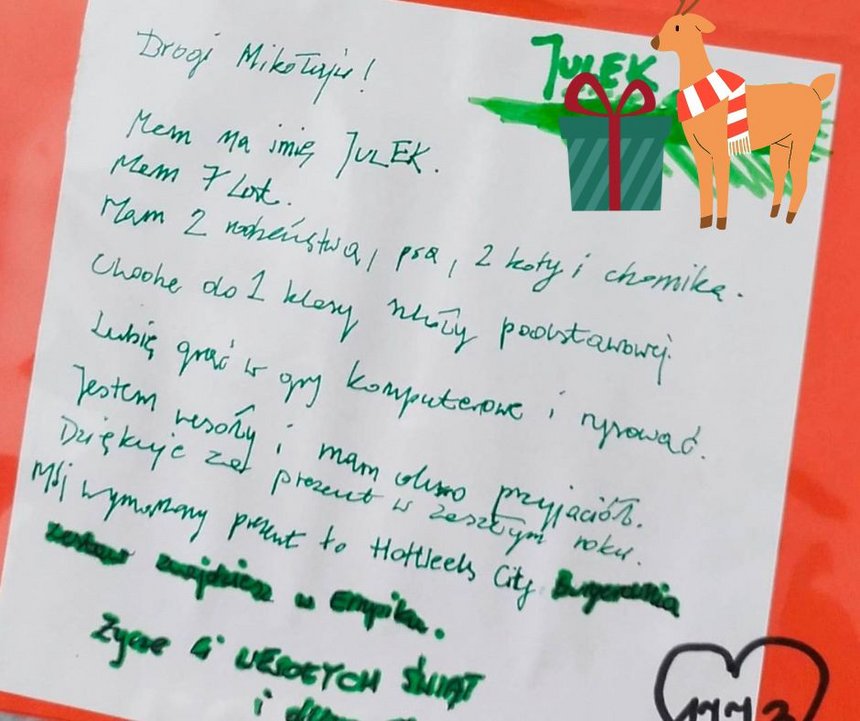 JULEK
Drogi Mikołaju!
Mam na imię JULEK.
Mam 7 lat.
Mam 2 rodzeństwa, psa, 2 koty i chomika.
Chodzę do 1 klasy szkoły podstawowej.
Lubię grać w gry komputerowe i rysować.
Jestem wesoły i mam dużo przyjaciół.
Dziękuję za prezent w zeszłym roku.
Mój wymarzony prezent to Hot Wheels City Burgerownia
zestaw znajdziesz w Empiku.
Życzę Ci WESOŁYCH ŚWIĄT
i